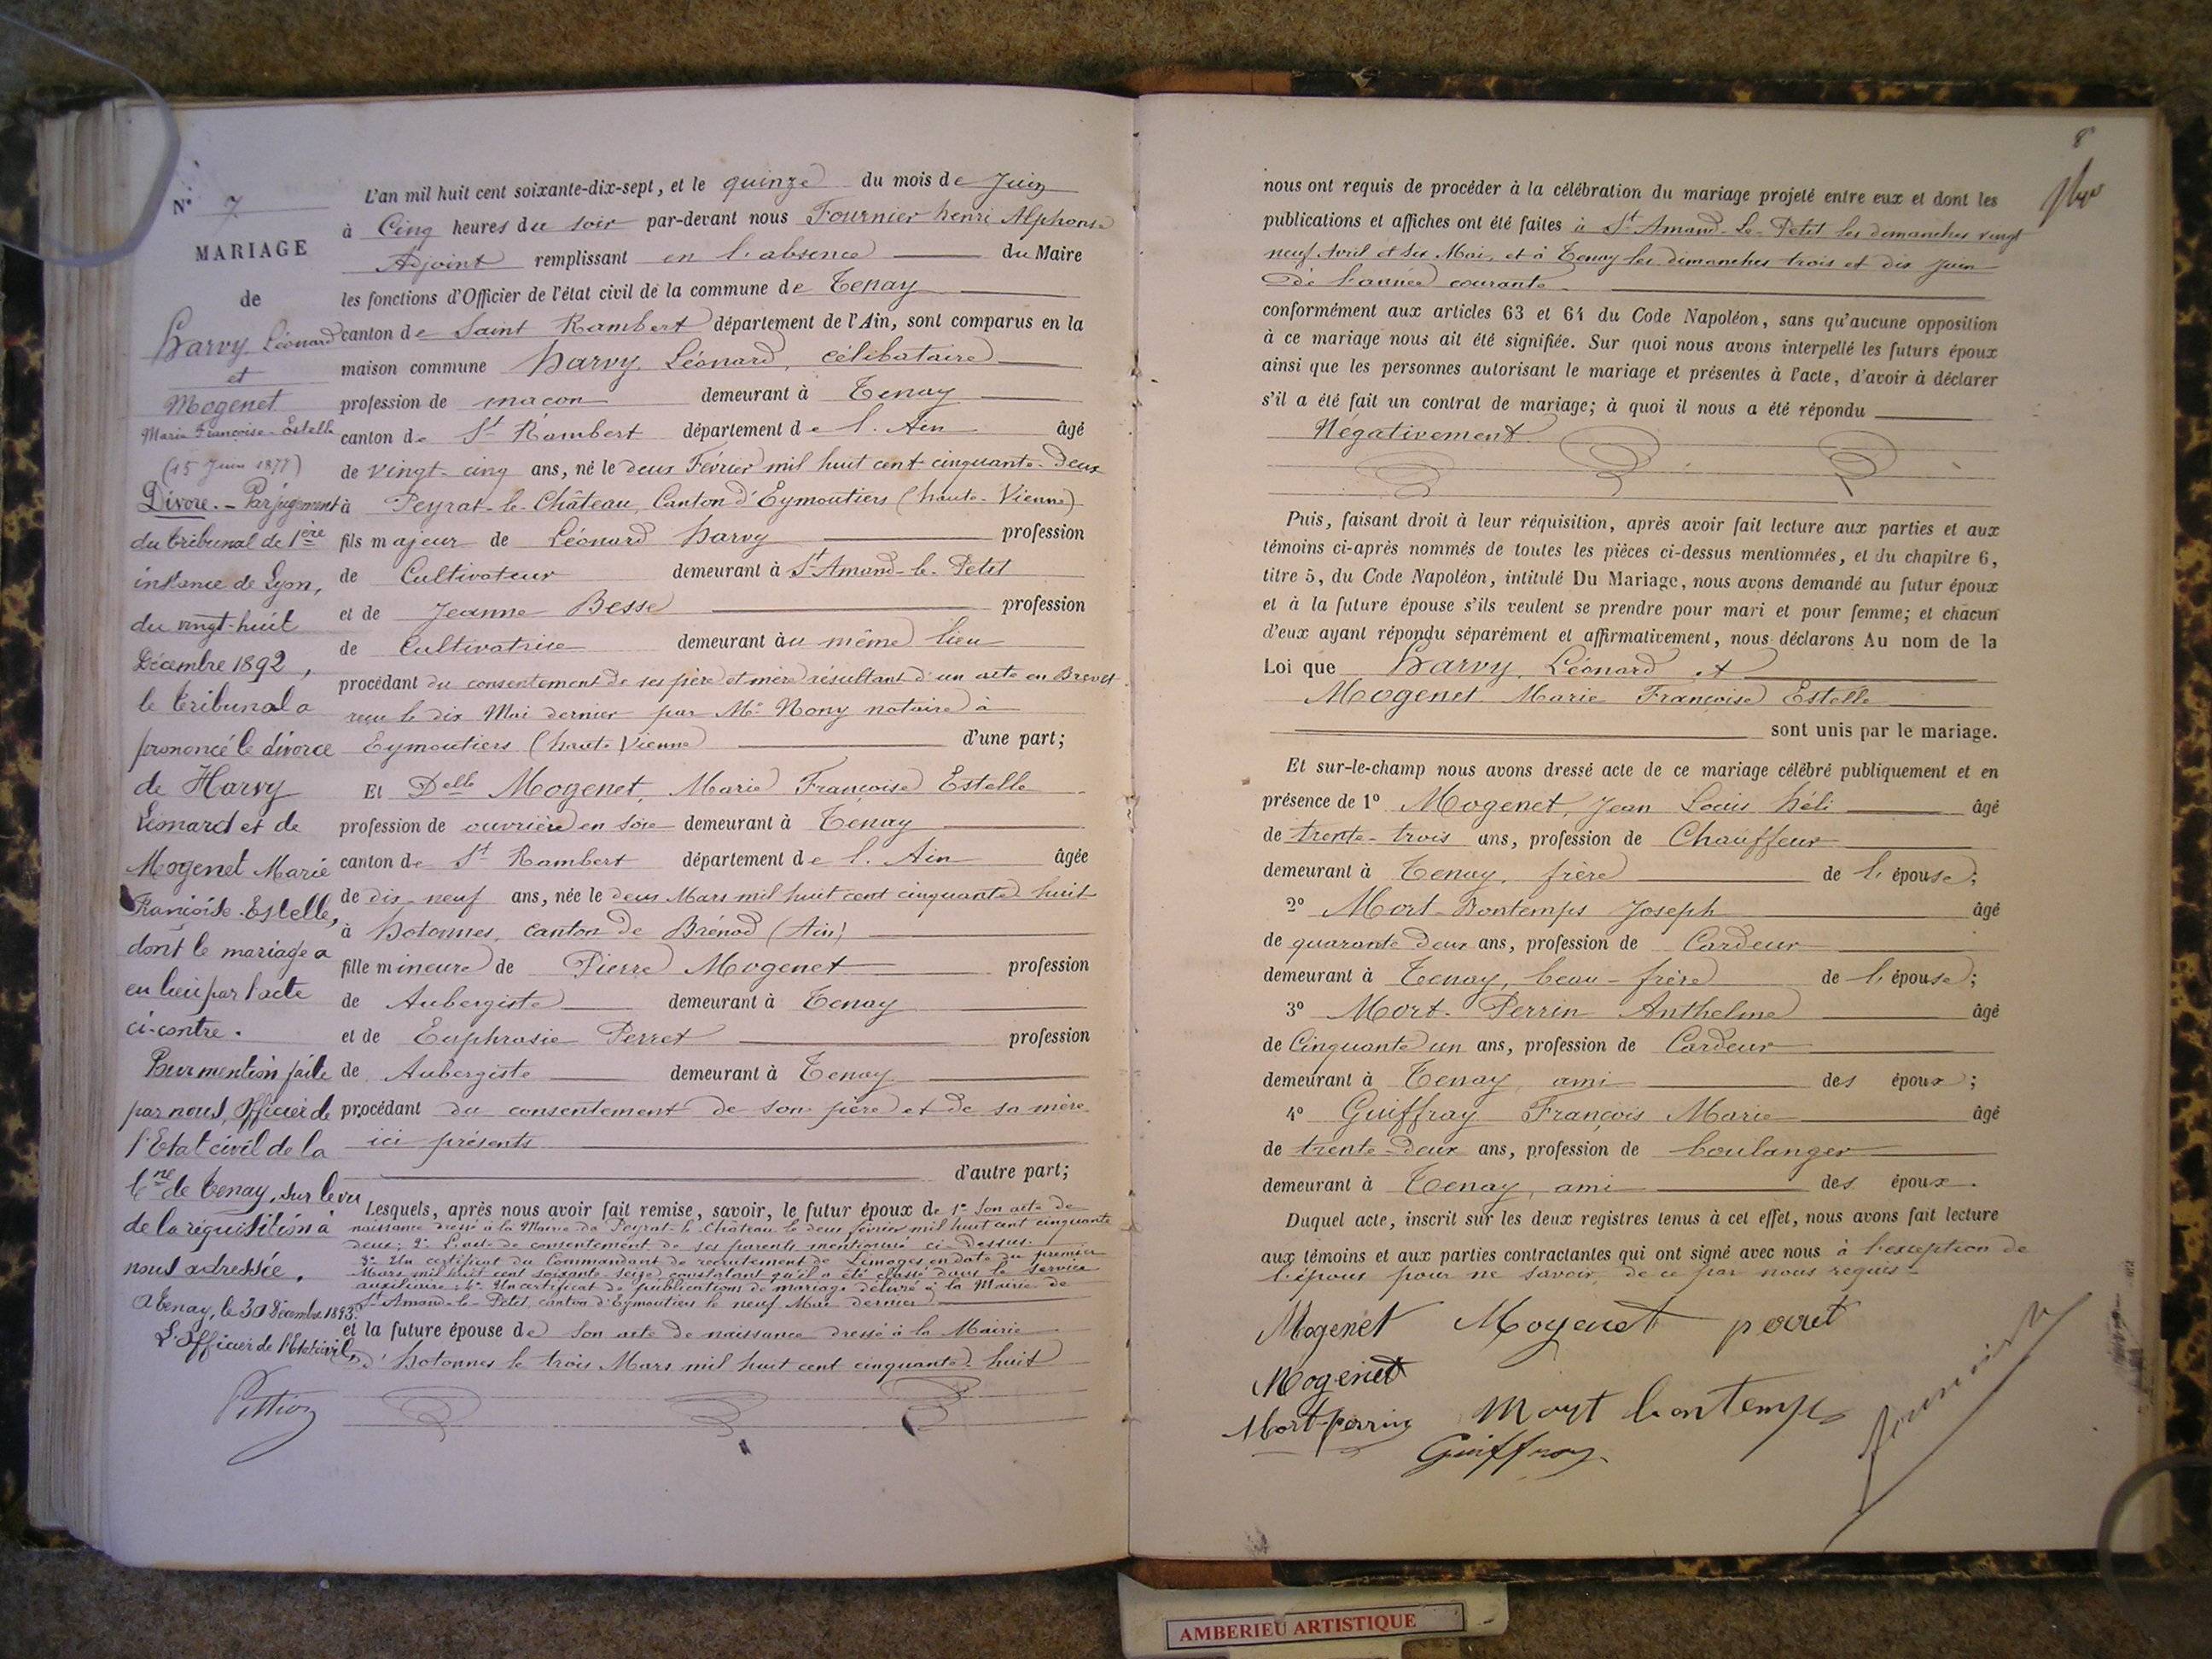 N° 7
MARIAGE
de
Harvy Léonard
et
Mogenet
Marie Françoise Estelle
(15 Juin 1877)
Divore. - Par jugement
du tribunal de 1ère
instance de Lyon,
du vingt-huit
Décembre 1892,
le tribunal a
prononcé le divorce
de Harvy
Léonard et de
Mogenet Marie
Françoise-Estelle,
dont le mariage a
eu lieu par l'acte
ci-contre.
Pour mention faite
par nous, Officier de
l'Etat civil de la
Cne de Tenay, sur le vu
de la réquisition à
nous adressée.
A Tenay, le 30 Décembre 1893.
L'Officier de l'Etat civil,
L'an mil huit cent soixante-dix-sept, et le quinze du mois de Juin
à Cinq heures du soir par-devant nous Fournier henri Alphonse
Adjoint remplissant en l'absence du Maire
les fonctions d'Officier de l'état civil de la commune de Tenay
canton de Saint Rambert département de l'Ain, sont comparus en la
maison commune Harvy, Léonard, célibataire
profession de maçon demeurant à Tenay
canton de St Rambert département de l'Ain âgé
de vingt-cinq ans, né le deux Février mil huit cent cinquante-deux
à Peyrat-le-Château, Canton d'Eymoutiers (haute-Vienne)
fils majeur de Léonard Harvy profession
de Cultivateur demeurant à St Amand-le-Petit
et de Jeanne Besse profession
de Cultivatrice demeurant au même lieu
procédant du consentement de ses père et mère résultant d'un acte en Brevet
reçu le dix Mai dernier par Me Nony notaire à
Eymoutiers (haute Vienne) d'une part;
Et Delle Mogenet, Marie Françoise Estelle
profession de ouvrière en soie demeurant à Tenay
canton de St Rambert département de l'Ain âgée
de dix-neuf ans, née le deux Mars mil huit cent cinquante huit
à hotonnes, canton de Brénod (Ain)
fille mineure de Pierre Mogenet profession
de Aubergiste demeurant à Tenay
et de Euphrosie Perret profession
de Aubergiste demeurant à Tenay
procédant du consentement de son père et de sa mère
ici présents
d'autre part;
Lesquels, après nous avoir fait remise, savoir, le futur époux de 1° Son acte de
naissance dressé à la Mairie de Peyrat-le-Château le deux février mil huit cent cinquante
deux; 2° L'acte de consentement de ses parents mentionné ci-dessus.
3° Un certificat du Commandant de recrutement de Limoges en date du premier
Mars mil huit cent soixante-seize constatant qu'il a été classé dans le service
auxiliaire; 4° Un certificat de publications de mariage délivré à la Mairie de
St Amand-le-Petit, canton d'Eymoutiers le neuf Mai dernier
et la future épouse de Son acte de naissance dressé à la Mairie
d'hotonnes le trois Mars mil huit cent cinquante-huit
8
nous ont requis de procéder à la célébration du mariage projeté entre eux et dont les
publications et affiches ont été faites à St Amand-Le-Petit les dimanches vingt
neuf Avril et Six Mai, et à Tenay les dimanches trois et dix juin
de l'année courante
conformément aux articles 63 et 64 du Code Napoléon, sans qu'aucune opposition
à ce mariage nous ait été signifiée. Sur quoi nous avons interpellé les futurs époux
ainsi que les personnes autorisant le mariage et présentes à l'acte, d'avoir à déclarer
s'il a été fait un contrat de mariage; à quoi il nous a été répondu
Négativement
Puis, faisant droit à leur réquisition, après avoir fait lecture aux parties et aux
témoins ci-après nommés de toutes les pièces ci-dessus mentionnées, et du chapitre 6,
titre 5, du Code Napoléon, intitulé Du Mariage, nous avons demandé au futur époux
et à la future épouse s'ils veulent se prendre pour mari et pour femme; et chacun
d'eux ayant répondu séparément et affirmativement, nous déclarons Au nom de la
Loi que Harvy, Léonard et
Mogenet Marie Françoise Estelle
sont unis par le mariage.
Et sur-le-champ nous avons dressé acte de ce mariage célébré publiquement et en
présence de 1° Mogenet, Jean Louis héli âgé
de trente-trois ans, profession de Chauffeur
demeurant à Tenay, frère de l'épouse;
2° Mort-Bontemps Joseph âgé
de quarante deux ans, profession de Cardeur
demeurant à Tenay, beau-frère de l'épouse;
3° Mort-Perrin Anthelme âgé
de Cinquante un ans, profession de Cardeur
demeurant à Tenay, ami des époux;
4° Guiffray François Marie âgé
de trente-deux ans, profession de boulanger
demeurant à Tenay, ami des époux.
Duquel acte, inscrit sur les deux registres tenus à cet effet, nous avons fait lecture
aux témoins et aux parties contractantes qui ont signé avec nous à l'exception de
l'époux pour ne savoir, de ce par nous requis
Mogenet Mogenet perret
Mogenet
Mort-perrin Mort bontemps
Guiffray
fournier
AMBERIEU ARTISTIQUE